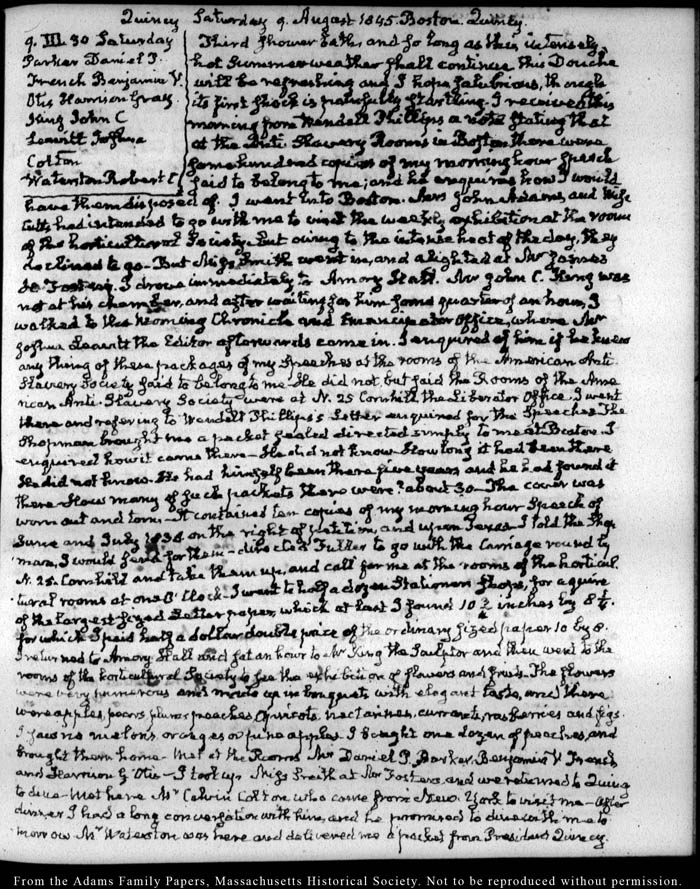 Quincy Saturday 9. August 1845. Boston. Quincy.
9. III. 30 Saturday
Parker Daniel P.
French Benjamin V.
Otis Harrison Gray.
King John C
Leavitt Joshua
Colton
Waterston Robert C
Third shower bath, and so long as this intensely
hot Summer weather shall continue this Douche
will be refreshing and I hope salubrious, though
its first shock is painfully startling. I received this
morning from Wendell Phillips a note stating that
at the Anti-Slavery Rooms in Boston there were
some hundred copies of my morning hour speech
said to belong to me; and he enquires how I would
have them disposed of. I went into Boston. Mrs John Adams, and Miss
Cutts had intended to go with me to visit the weekly exhibition at the rooms
of the horticultural Society. But owing to the intense heat of the day, they
declined to go. But Miss Smith went in, and alighted at Mr James
H. Foster's. I drove immediately to Amory Hall. Mr John C. King was
not at his chamber, and after waiting for him some quarter of an hour, I
walked to the Morning Chronicle and Emancipator Office, where Mr
Joshua Leavitt the Editor afterwards came in. I enquired of him if he knew
any thing of these packages of my Speeches at the rooms of the American Anti
Slavery Society said to belong to me. He did not, but said the Rooms of the Ame
rican Anti-Slavery Society were at N. 25 Cornhill the Liberator Office. I went
there and refering to Wendell Phillips's Letter enquired for the Speeches. The
Shopman brought me a packet sealed directed simply to me at Boston. I
enquired how it came there. He did not know. How long it had been there
He did not know. He had himself been there five years and he had found it
there. How many of such packets there were? about 30. The cover was
worn out and torn. It contained ten copies of my morning hour Speech of
June and July 1838 on the right of petition, and upon Texas. I told the Shop
man, I would send for them. directed to go with the Carriage round to
N. 25. Cornhill and take them up, and call for me at the rooms of the horticul
tural rooms at one O'Clock. I went to half a dozen Stationers Shops, for a quire
of the largest sized Letter paper, which at last I found 10 inches by 8
for which I paid half a dollar double price of the ordinary sized paper 10 by 8.
I returned to Amory Hall and sat an hour to Mr King the Sculptor and then went to the
rooms of the horticultural Society to see the exhibition of flowers and fruits. The flowers
were very numerous and made up in bouquets with elegant taste, and there
were apples, pears, plums, peaches, Apricots, nectarines, currants, rasberries and figs.
I saw no melons, oranges or pine apples. I bought one dozen of peaches, and
brought them home. Met at the Rooms Mr Daniel P. Parker, Benjamin V. French
and Harrison G Otis. I took up Miss Smith at Mr Fosters and we returned to Quincy
to dine. Met here Mr Calvin Colton who came from New York to visit me. After
dinner I had a long conversation with him, and he promised to dine with me to
morrow. Mr Waterston was here and delivered me a packet from President Quincy.
From the Adams Family Papers, Massachusetts Historical Society. Not to be reproduced without permission.